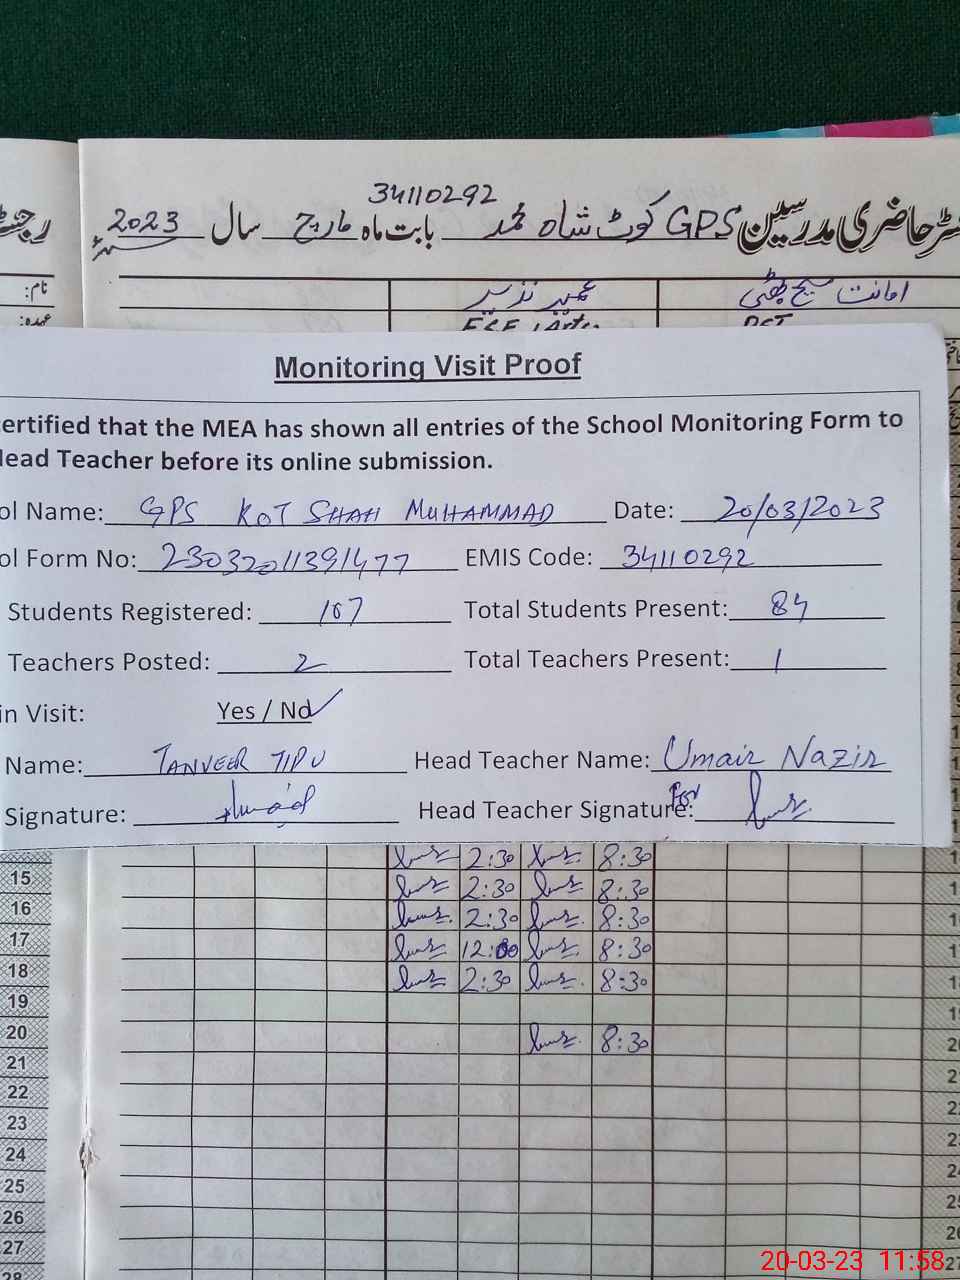 34110292
رجسٹر حاضری مدرسین GPS کوٹ شاہ محمد بابت ماہ مارچ سال 2023
نام: عمیر نذیر امانت مسیح بھٹی
عہدہ: PST
Monitoring Visit Proof
ertified that the MEA has shown all entries of the School Monitoring Form to
Head Teacher before its online submission.
ol Name: GPS KOT SHAH MUHAMMAD Date: 20/03/2023
ol Form No: 23032011391477 EMIS Code: 34110292
Students Registered: 107 Total Students Present: 84
Teachers Posted: 2 Total Teachers Present: 1
in Visit: Yes / No
Name: TANVEER TIPU Head Teacher Name: Umair Nazir
Signature: Head Teacher Signature: For
2:30 8:30
15 2:30 8:30
16 2:30 8:30
17 12:00 8:30
18 2:30 8:30
19
20 8:30
21
22
23
24
25
26
27
28
20-03-23 11:58